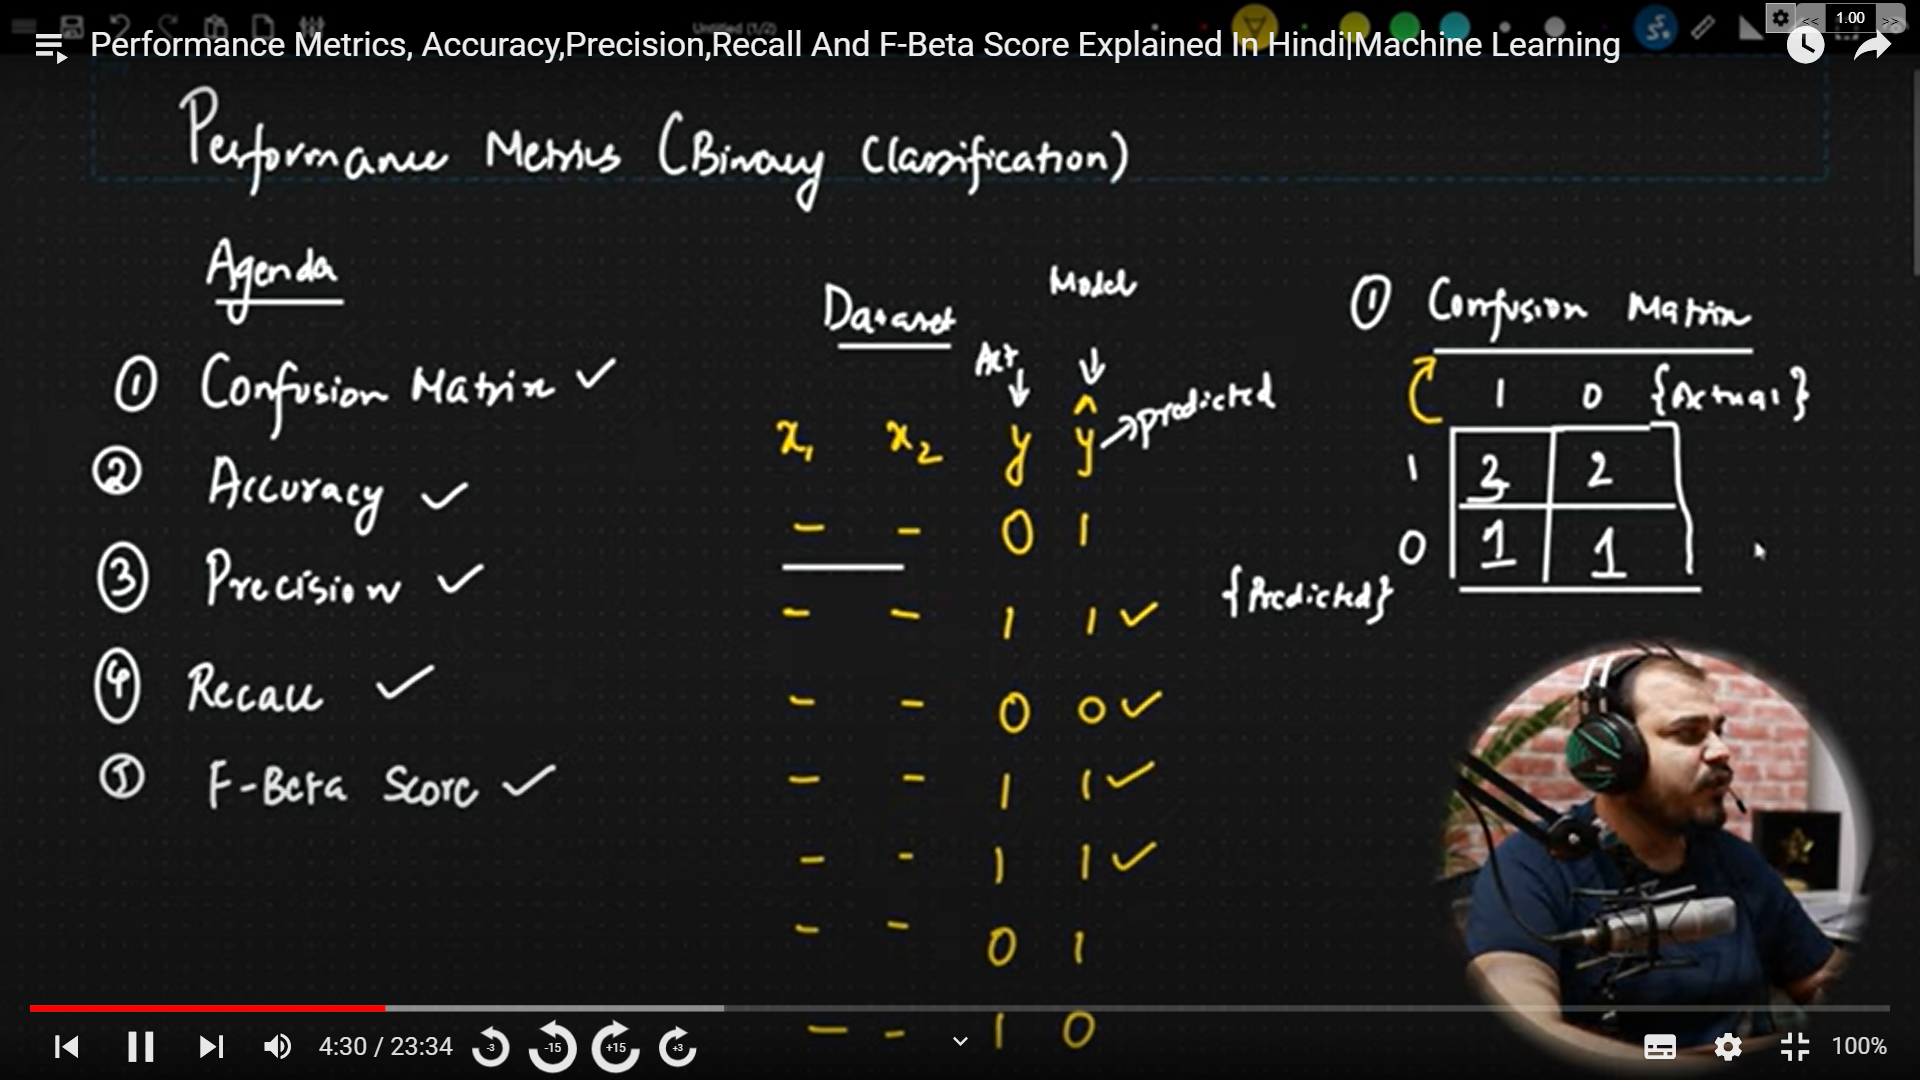 Untitled (1/2)
<< 1.00 >>
Performance Metrics, Accuracy,Precision,Recall And F-Beta Score Explained In Hindi|Machine Learning
Performance Metrics (Binary Classification)
Agenda
① Confusion Matrix ✓
② Accuracy ✓
③ Precision ✓
④ Recall ✓
⑤ F-Beta Score ✓
Dataset
Model
Act
x₁ x₂ y ŷ → predicted
- - 0 1
- - 1 1 ✓
- - 0 0 ✓
- - 1 1 ✓
- - 1 1 ✓
- - 0 1
- - 1 0
① Confusion Matrix
1 0 {Actual}
1 3 2
0 1 1
{Predicted}
4:30 / 23:34
-3 -15 +15 +3
100%